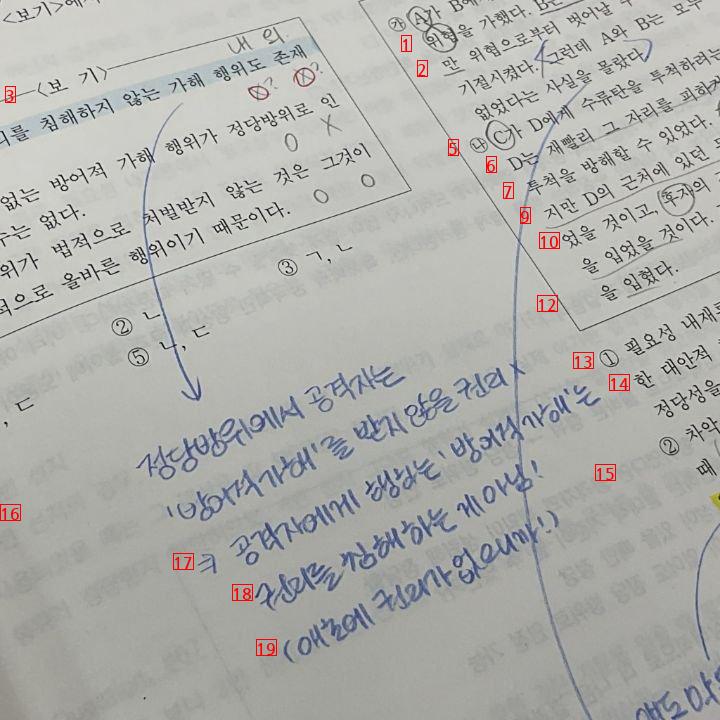 <보기>에
<보 기>
내 외
리를 침해하지 않는 가해 행위도 존재
ⓧ? ⓧ?
없는 방어적 가해 행위가 정당방위로 인
O X
수는 없다.
위가 법적으로 처벌받지 않는 것은 그것이
적으로 올바른 행위이기 때문이다.
O O
② ㄴ
③ ㄱ, ㄴ
⑤ ㄴ, ㄷ
, ㄷ
정당방위에서 공격자는
'방어적가해'를 받지 않을 권리 x
=> 공격자에게 행하는 '방어적가해'는
권리를 침해하는 게 아님!
(애초에 권리가 없으니까!)
㉮ A가 B에
위협을 가했다. B는
만 위협으로부터 벗어날 수
기절시켰다. 그런데 A와 B는 모두
없었다는 사실을 몰랐다.
㉯ C가 D에게 수류탄을 투척하려는
D는 재빨리 그 자리를 피하
투척을 방해할 수 있었다.
지만 D의 근처에 있던
었을 것이고, 후자의
을 입었을 것이다.
을 입혔다.
① 필요성 내재
한 대안적
정당성을
② 차악
때